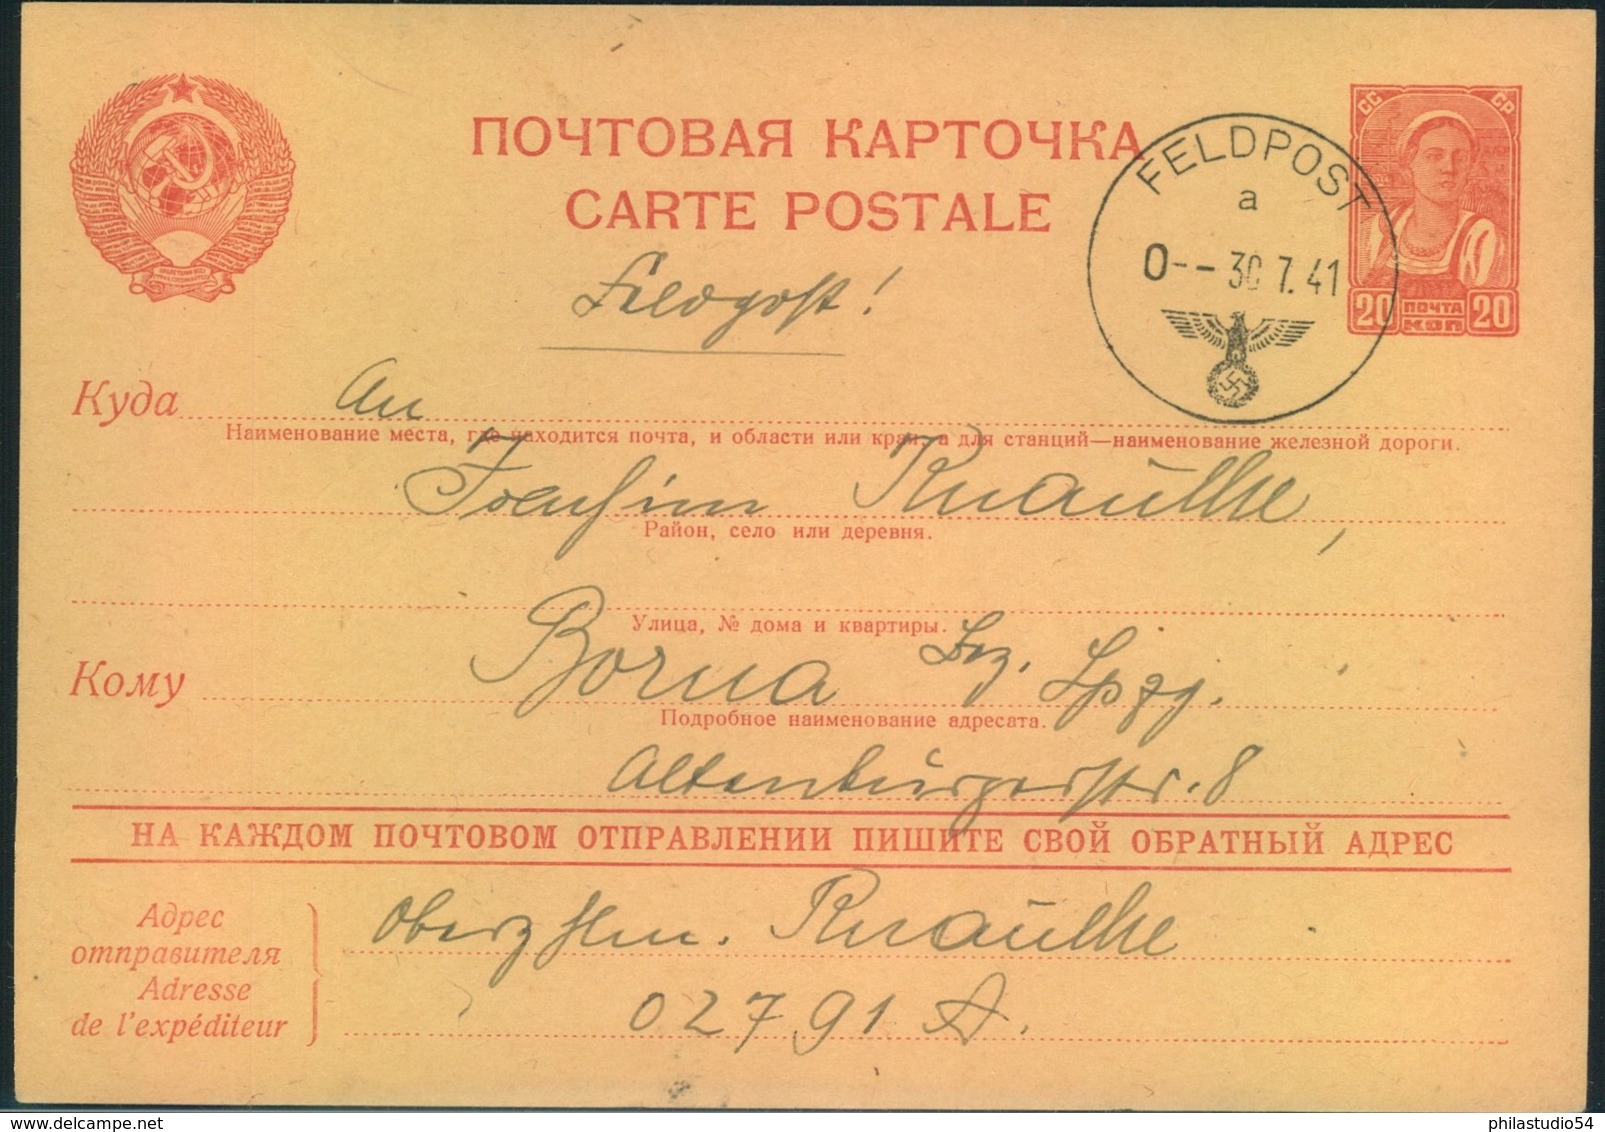 ПОЧТОВАЯ КАРТОЧКА
CARTE POSTALE
СС СР
20 ПОЧТА КОП 20
FELDPOST
a
30 7. 41
Feldpost!
Куда An
Наименование места, где находится почта, и области или края, а для станций—наименование железной дороги.
Joachim Knauthe,
Район, село или деревня.
Улица, № дома и квартиры.
Кому Borna Bez. Lpzg.
Подробное наименование адресата.
Altenburgerstr. 8
НА КАЖДОМ ПОЧТОВОМ ОТПРАВЛЕНИИ ПИШИТЕ СВОЙ ОБРАТНЫЙ АДРЕС
Адрес
отправителя
Adresse
de l'expéditeur
Oberzhlm. Knauthe
02791 A.
philastudio54